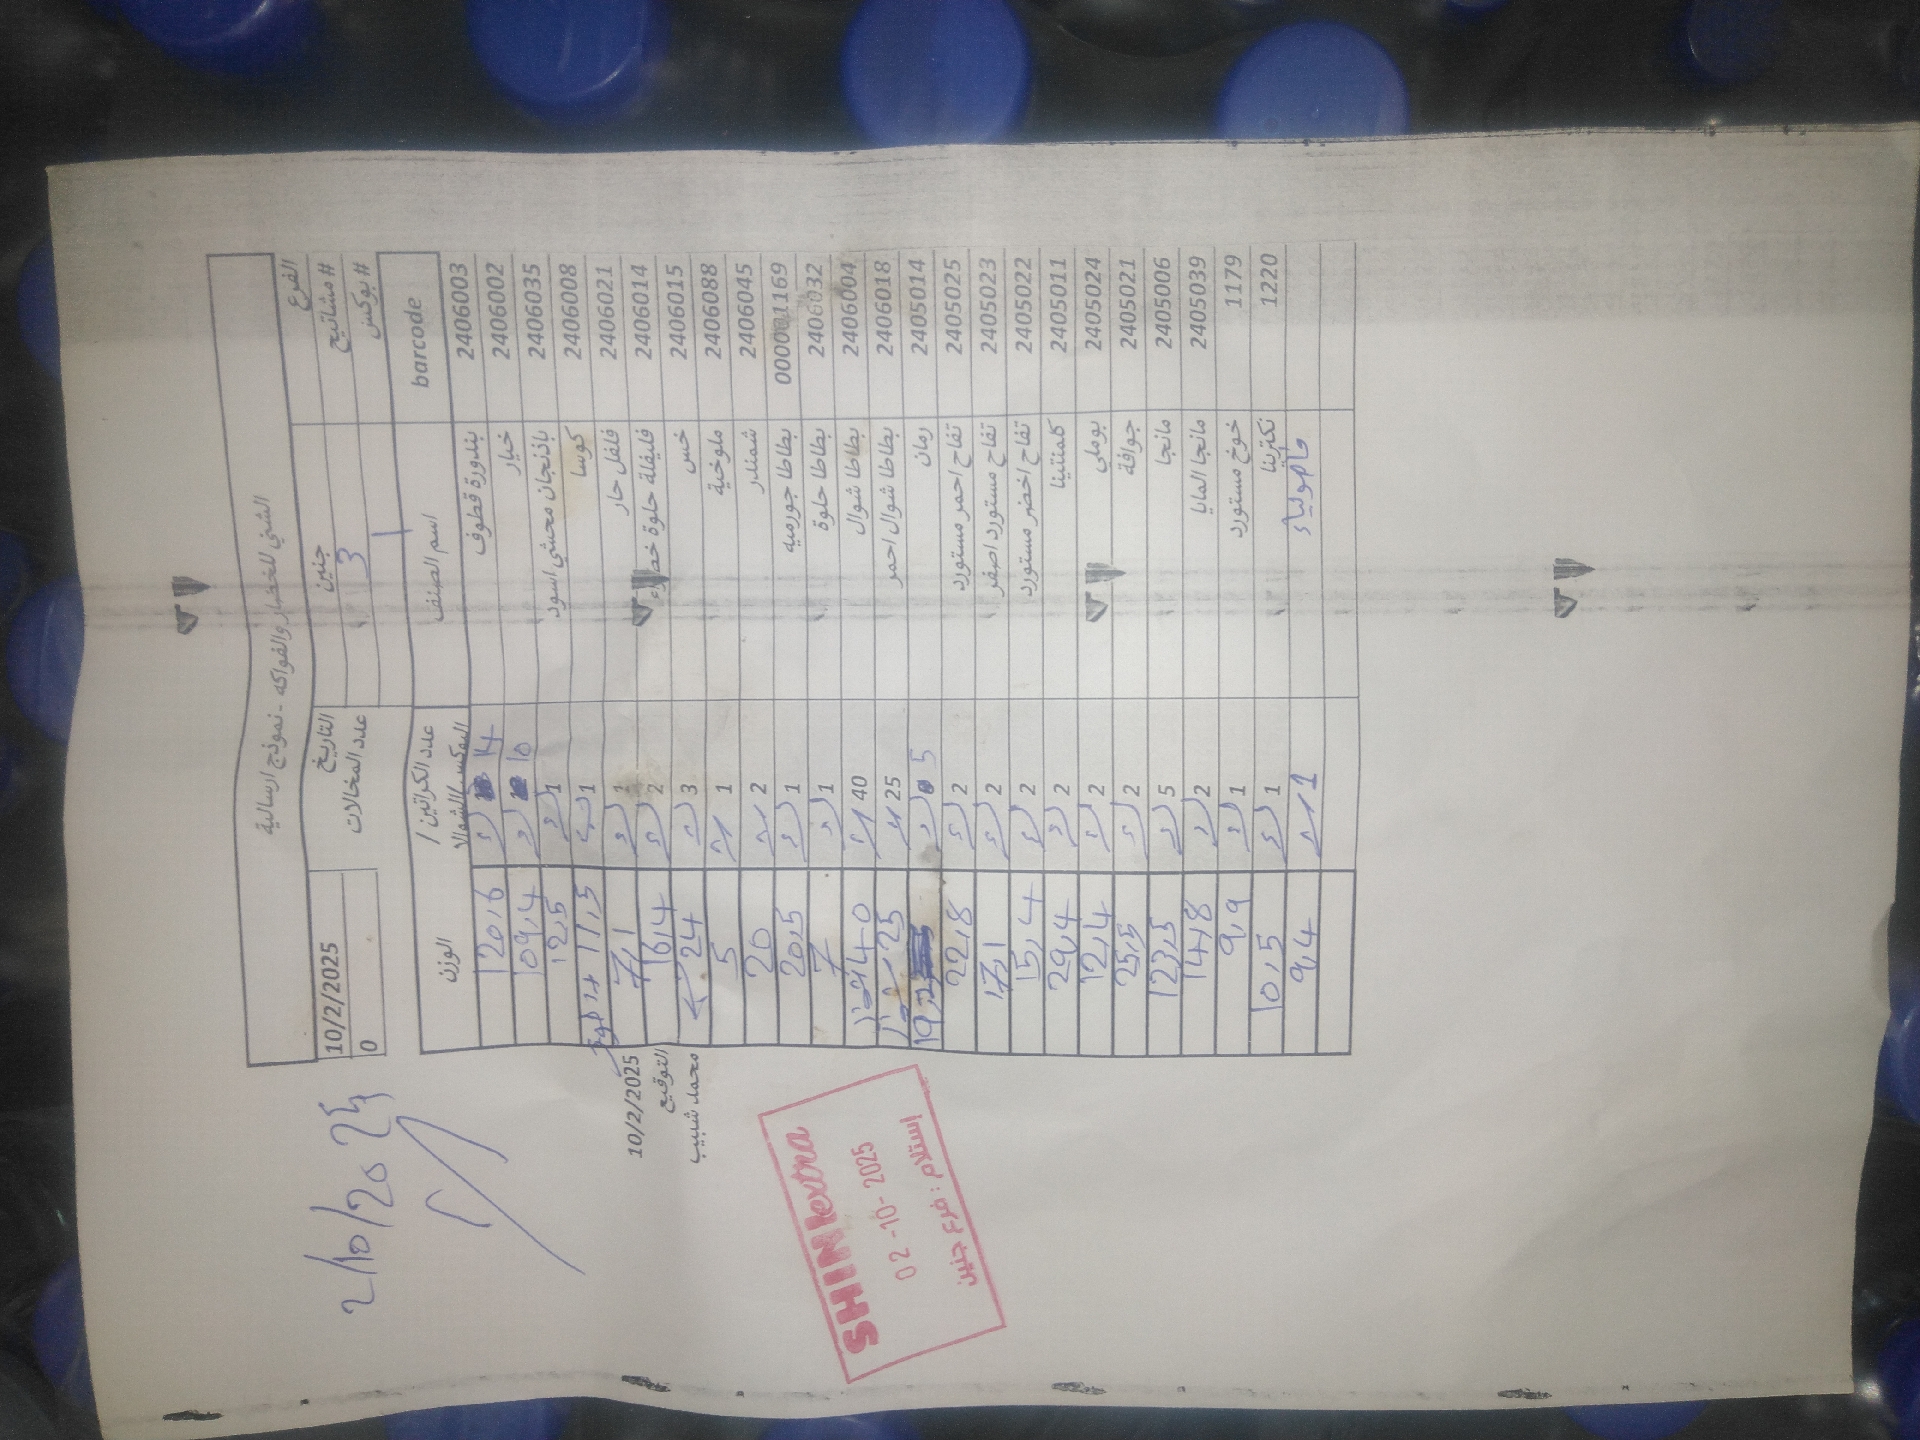 الشني للخضار والفواكه - نموذج ارسالية
الفرع جنين التاريخ 10/2/2025
# مشاتيح 3 عدد المخالات 0
# بوكس 1
barcode اسم الصنف عدد الكراتين / البوكس/الشوالات الوزن
2406003 بندورة قطوف 14 120,6
2406002 خيار 10 109,4
2406035 باذنجان محشي اسود 1 12,5
2406008 كوسا 1 11,5
2406021 فلفل حار 1 7,1
2406014 فليفلة حلوة خضراء 2 16,4
2406015 خس 3 24
2406088 ملوخية 1 5
2406045 شمندر 2 20
0000001169 بطاطا جورميه 1 20,5
2406032 بطاطا حلوة 1 7
2406004 بطاطا شوال 40 40
2406018 بطاطا شوال احمر 25 25
2405014 رمان 5 19,2
2405025 تفاح احمر مستورد 2 22,8
2405023 تفاح مستورد اصفر 2 17,1
2405022 تفاح اخضر مستورد 2 15,4
2405011 كلمنتينا 2 29,4
2405024 بوملي 2 12,4
2405021 جوافة 2 25,5
2405006 مانجا 5 123,5
2405039 مانجا المايا 2 14,8
1179 خوخ مستورد 1 9,9
1220 نكترينا 1 10,5
1 9,4
10/2/2025
التوقيع
محمد شبيب
2/10/2025
SHINI extra
02-10-2025
استلام : فرع جنين